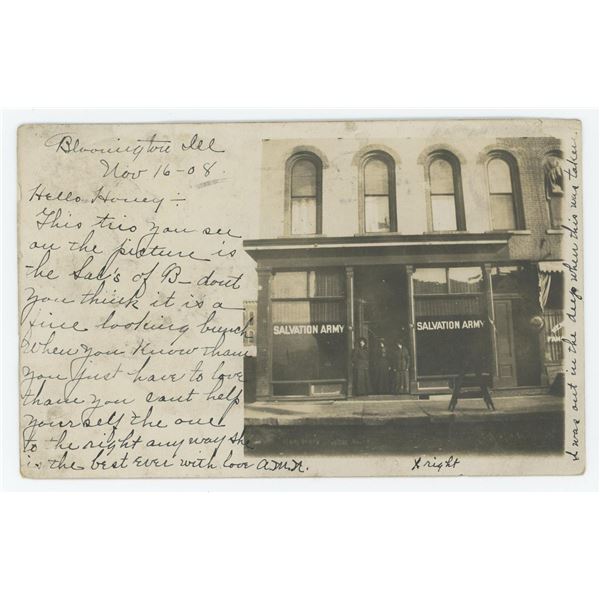 Bloomington Ill
Nov 16-08.
Hello Honey -
This trio you see
on the picture is
the Sac's of B- dont
you think it is a
fine looking bunch
When you Know tham
you just have to love
tham you cant help
yourself the one
to the right any way she
is the best ever with love A.M.N.
SALVATION ARMY
SALVATION ARMY
X right
I was out in the diego when this was taken.